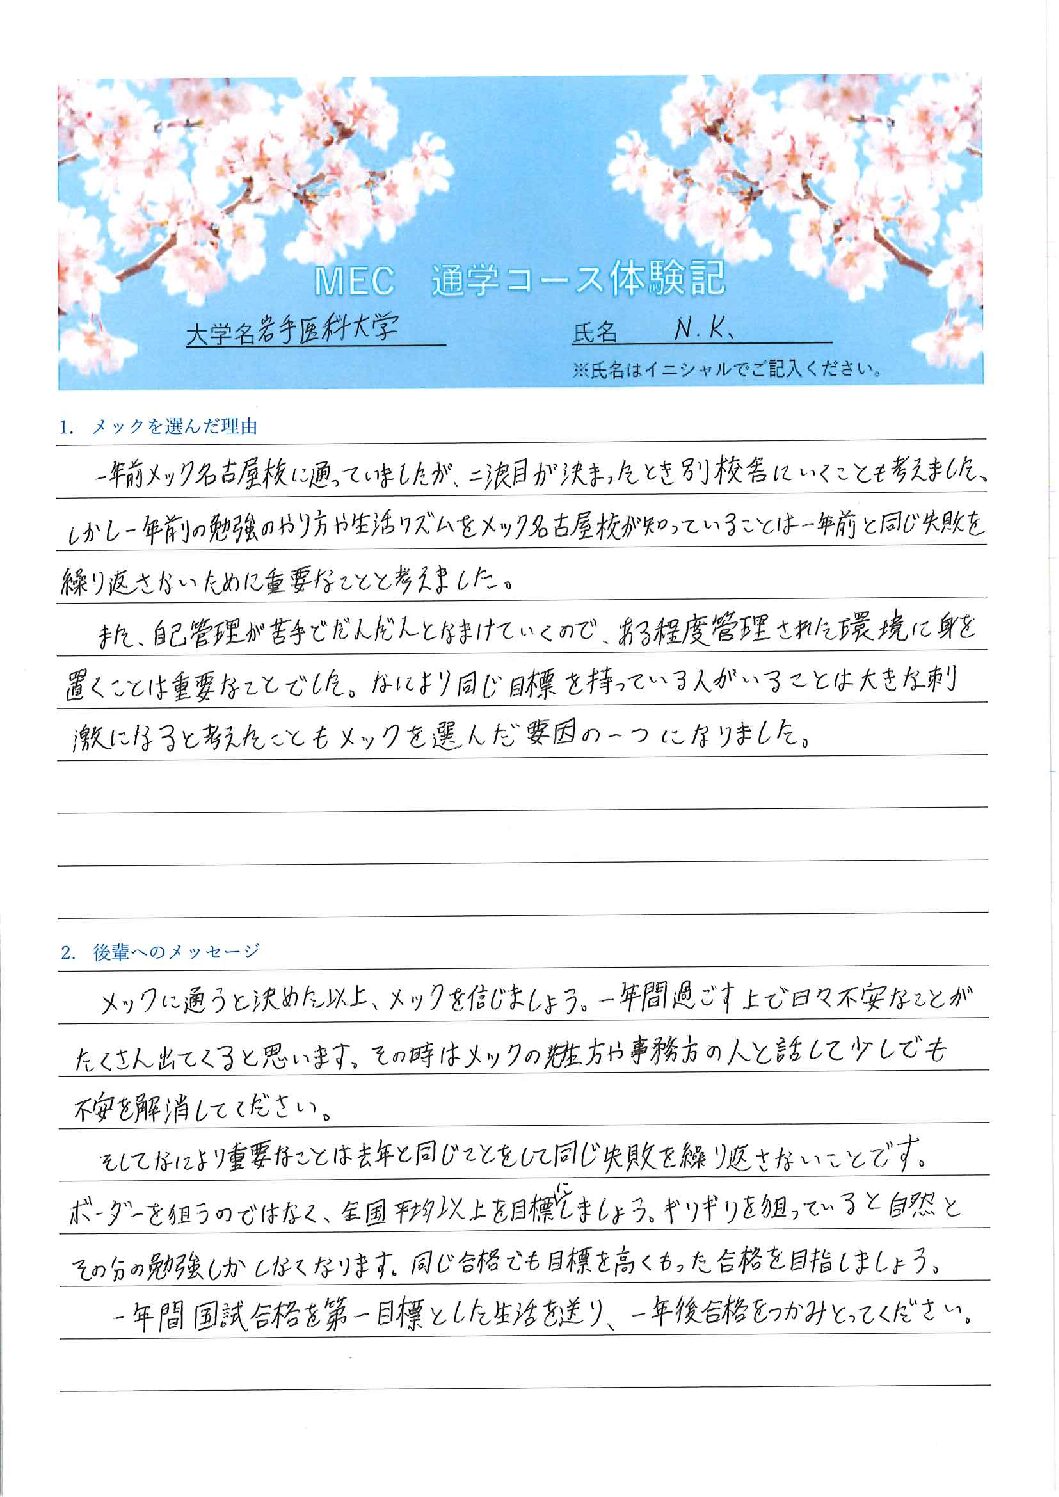 MEC 通学コース体験記
大学名 岩手医科大学 氏名 N.K.
※氏名はイニシャルでご記入ください。
1. メックを選んだ理由
一年前メック名古屋校に通っていましたが、二浪目が決まったとき別校舎にいくことも考えました。
しかし一年前の勉強のやり方や生活リズムをメック名古屋校が知っていることは一年前と同じ失敗を
繰り返さないために重要なことと考えました。
また、自己管理が苦手でだんだんとなまけていくので、ある程度管理された環境に身を
置くことは重要なことでした。なにより同じ目標を持っている人がいることは大きな刺
激になると考えたこともメックを選んだ要因の一つになりました。
2. 後輩へのメッセージ
メックに通うと決めた以上、メックを信じましょう。一年間過ごす上で日々不安なことが
たくさん出てくると思います。その時はメックの先生方や事務方の人と話して少しでも
不安を解消してください。
そしてなにより重要なことは去年と同じことをして同じ失敗を繰り返さないことです。
ボーダーを狙うのではなく、全国平均以上を目標にしましょう。ギリギリを狙っていると自然と
その分の勉強しかしなくなります。同じ合格でも目標を高くもった合格を目指しましょう。
一年間国試合格を第一目標とした生活を送り、一年後合格をつかみとってください。